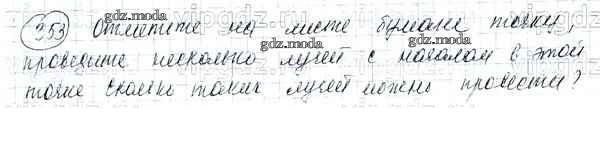 353 Отметите на листе бумаги точку,
проведите несколько лучей с началом в этой
точке Сколько таких лучей можно провести?
gdz.moda
gdz.moda
gdz.moda
gdz.moda